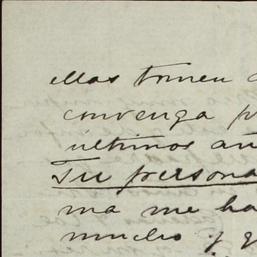 ellas tomen
convenga
últimos
Su persona
ma me ha
mucho y